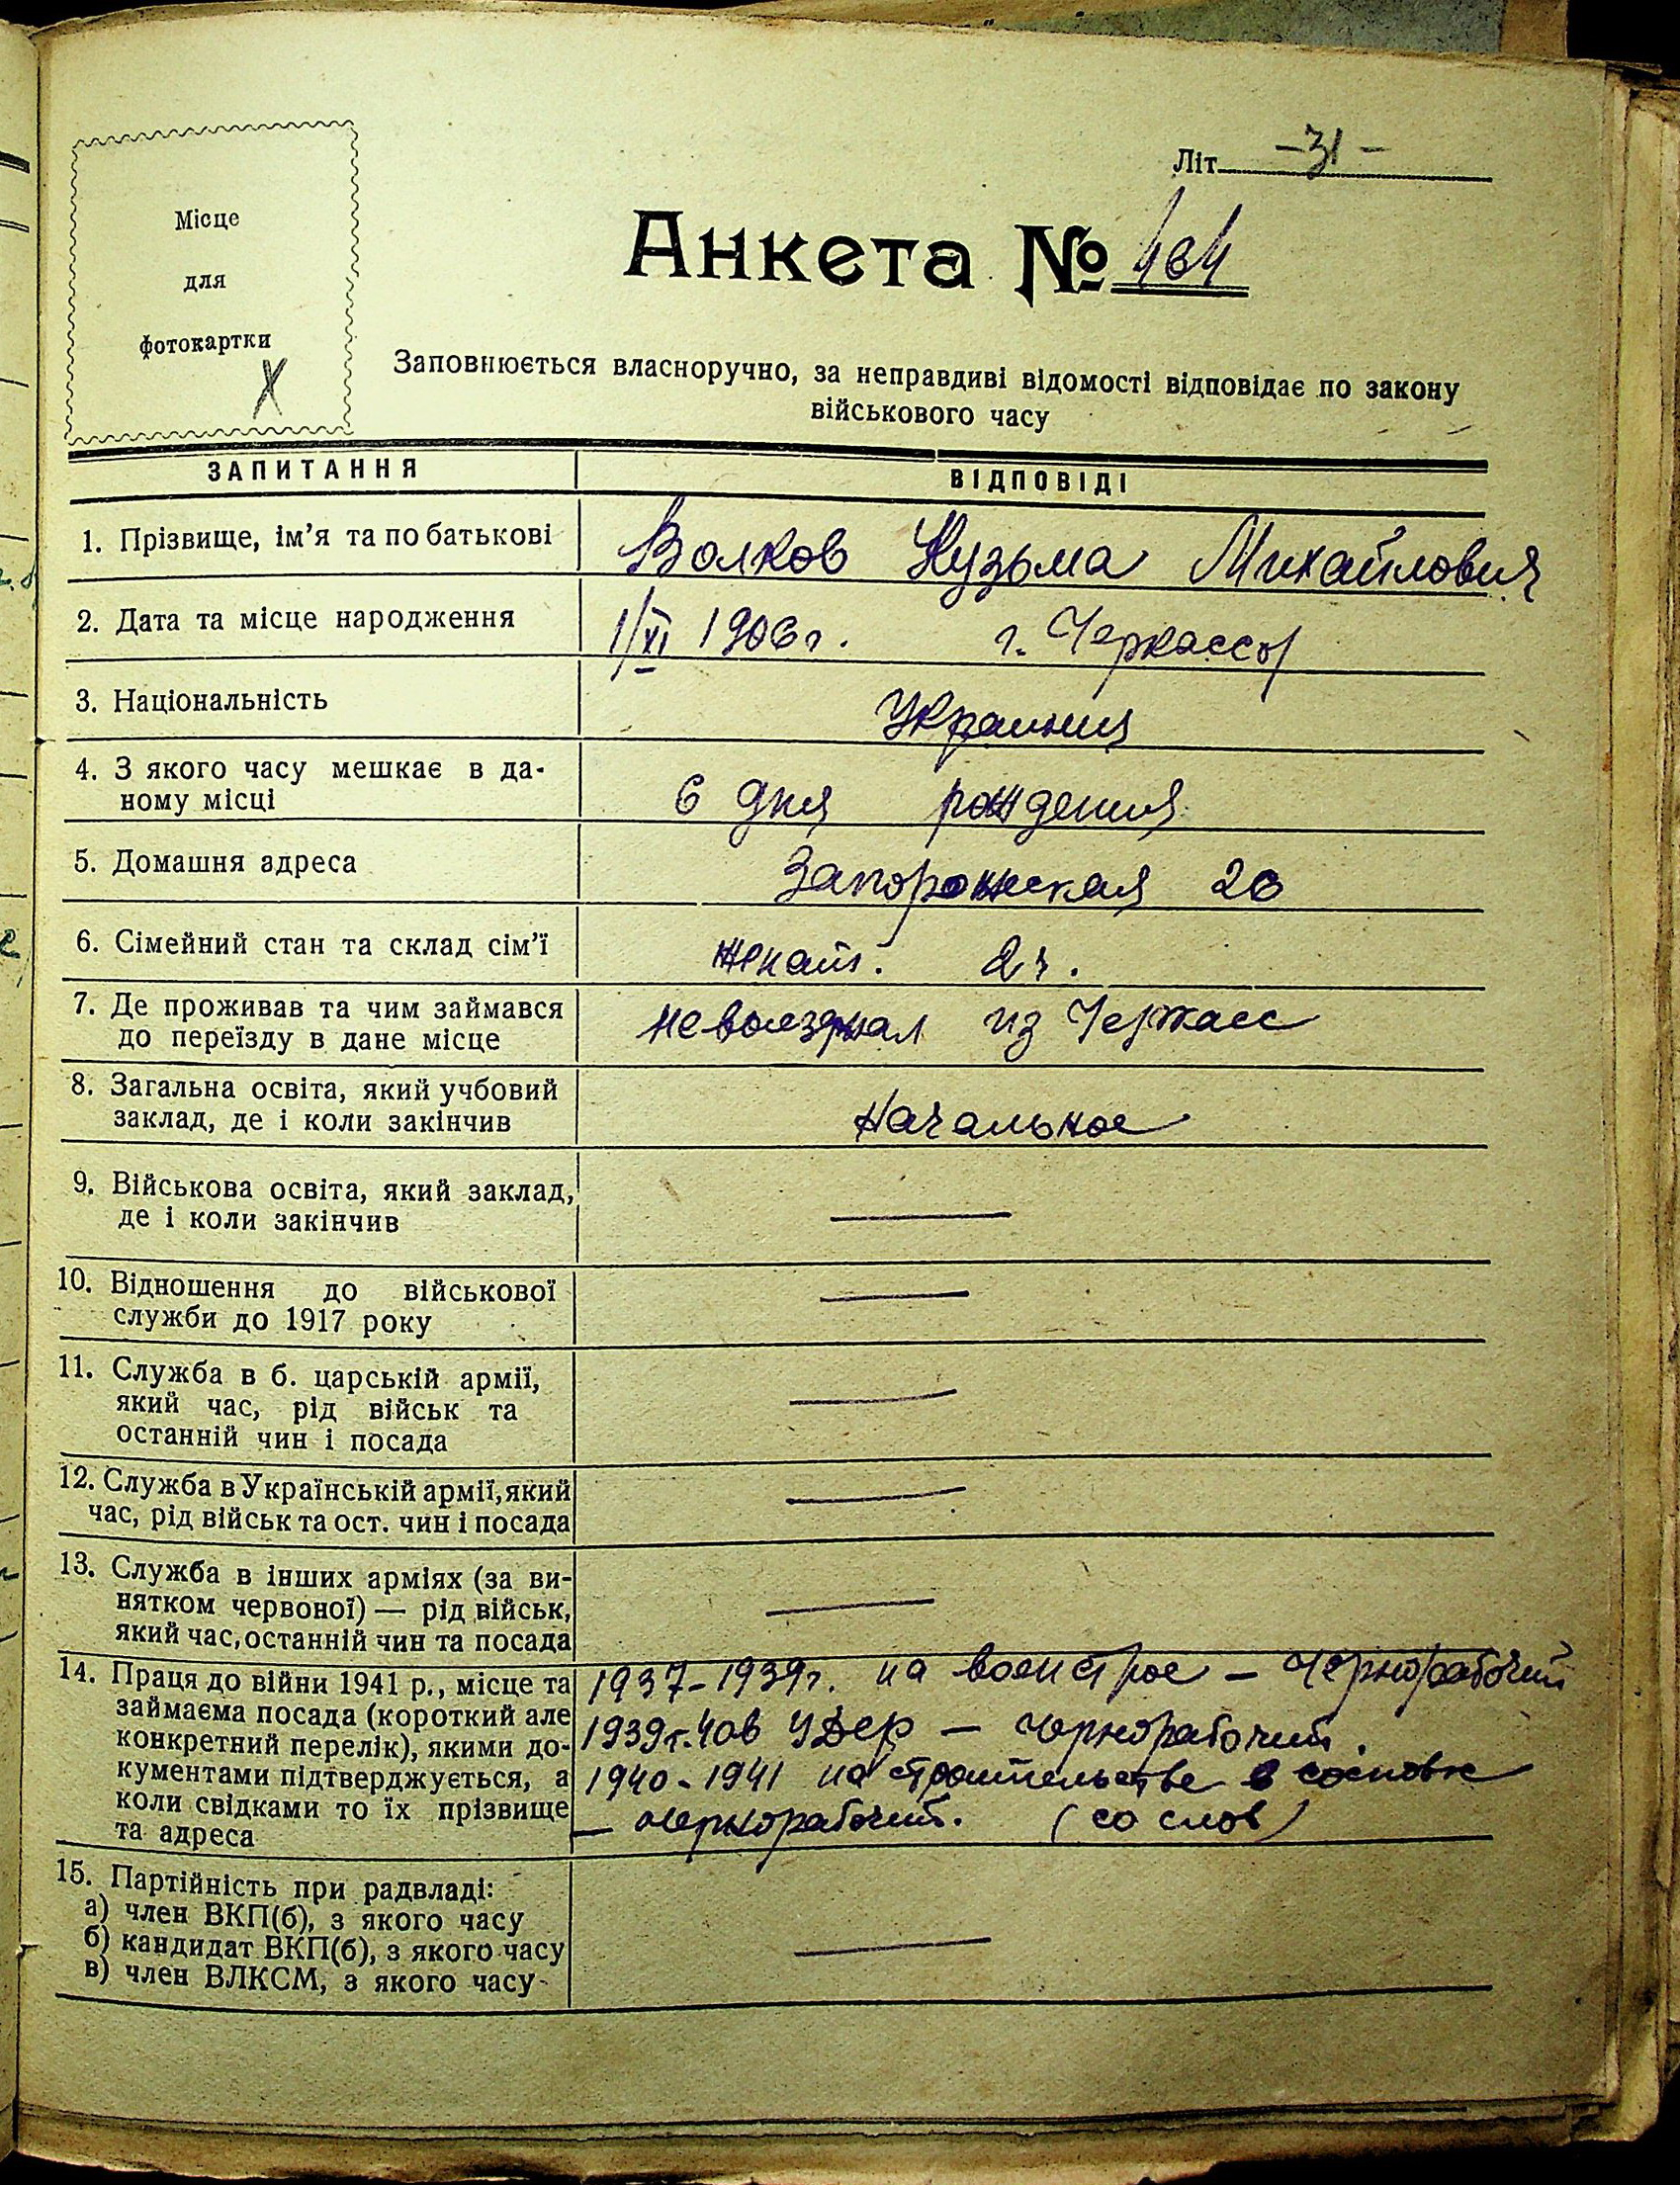 Місце
для
фотокартки
X
Літ. -31-
Анкета № 464
Заповнюється власноручно, за неправдиві відомості відповідає по закону
військового часу
ЗАПИТАННЯ
ВІДПОВІДІ
1. Прізвище, ім'я та по батькові
Волков Кузьма Михайлович
2. Дата та місце народження
1/XI 1906 г. г. Черкассы
3. Національність
Украинец
4. З якого часу мешкає в да-
ному місці
С дня рождения
5. Домашня адреса
Запорожская 26
6. Сімейний стан та склад сім'ї
женат. 2 ч.
7. Де проживав та чим займався
до переїзду в дане місце
невыезжал из Черкасс
8. Загальна освіта, який учбовий
заклад, де і коли закінчив
Начальное
9. Військова освіта, який заклад,
де і коли закінчив
—
10. Відношення до військової
служби до 1917 року
—
11. Служба в б. царській армії,
який час, рід військ та
останній чин і посада
—
12. Служба в Українській армії, який
час, рід військ та ост. чин і посада
—
13. Служба в інших арміях (за ви-
нятком червоної) — рід військ,
який час, останній чин та посада
—
14. Праця до війни 1941 р., місце та
займаєма посада (короткий але
конкретний перелік), якими до-
кументами підтверджується, а
коли свідками то їх прізвище
та адреса
1937-1939 г. на военстрое — Чернорабочий
1939 г. — чернорабочий.
1940-1941 на строительстве в сосновке
— чернорабочий. (со слов)
15. Партійність при радвладі:
а) член ВКП(б), з якого часу
б) кандидат ВКП(б), з якого часу
в) член ВЛКСМ, з якого часу
—